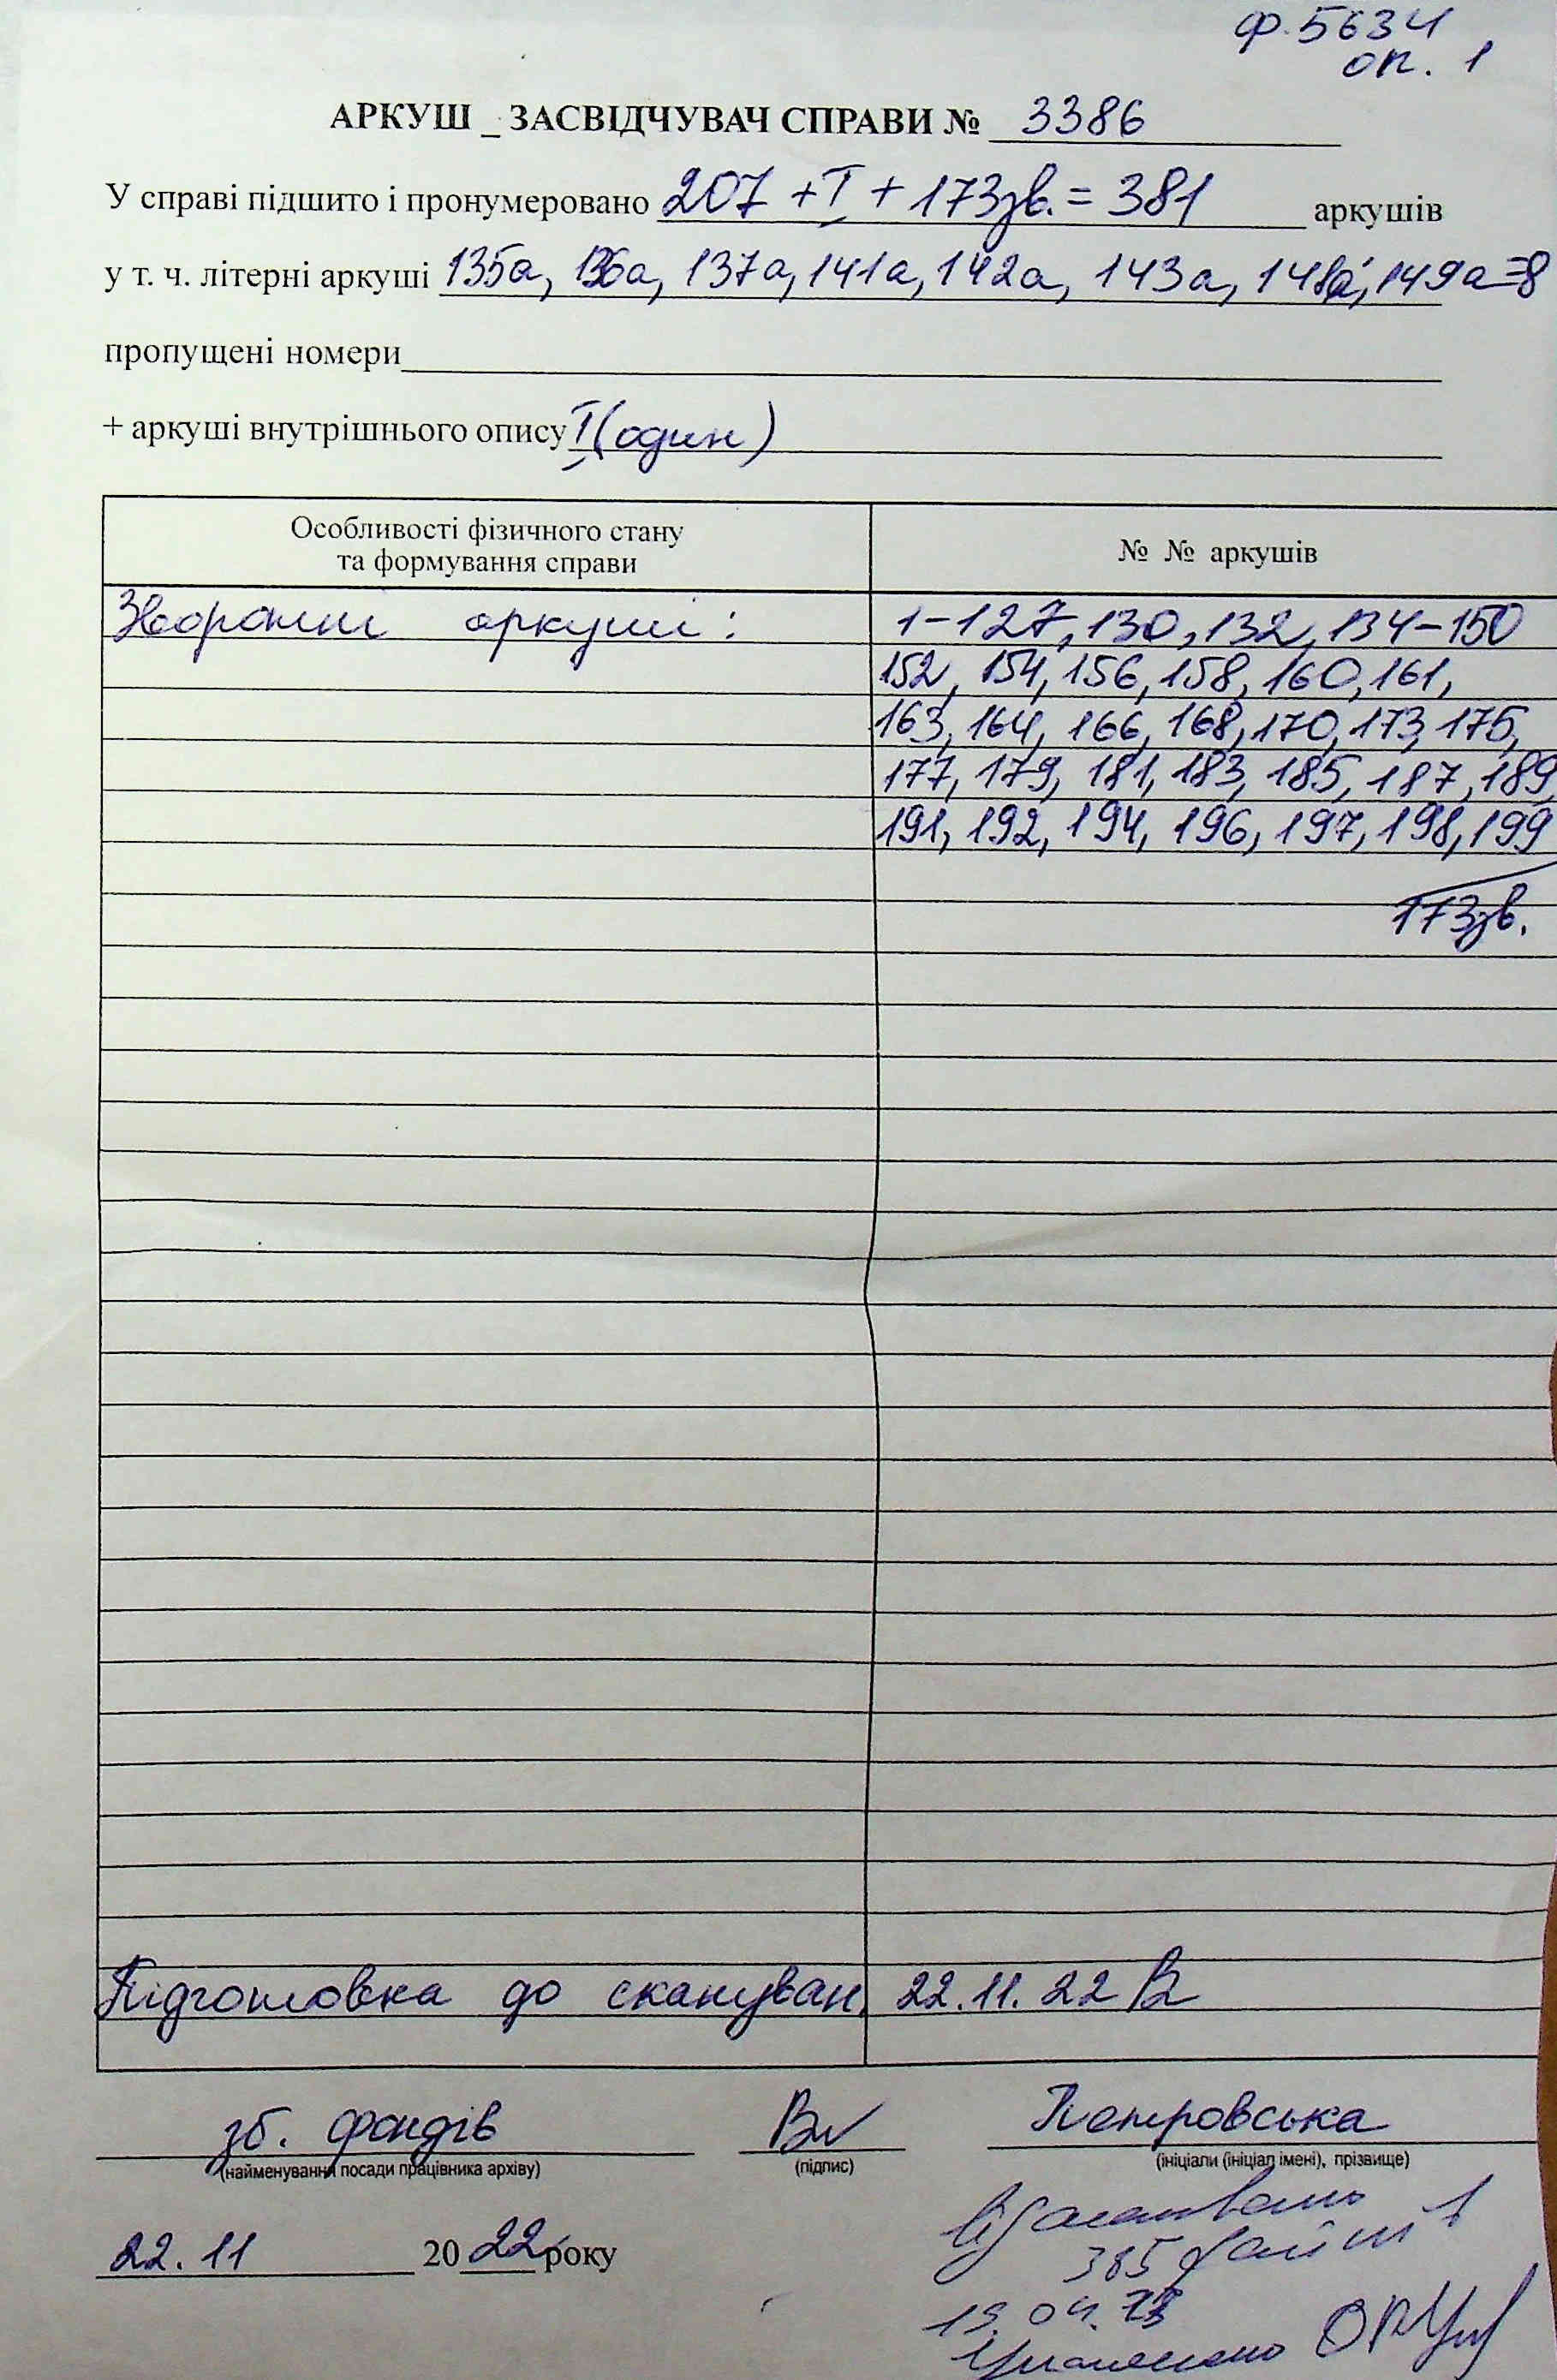 ф. 5634
оп. 1
АРКУШ _ ЗАСВІДЧУВАЧ СПРАВИ № 3386
У справі підшито і пронумеровано 207 + I + 173зв. = 381 аркушів
у т. ч. літерні аркуші 135а, 136а, 137а, 141а, 142а, 143а, 148а, 149а=8
пропущені номери
+ аркуші внутрішнього опису I (один)
Особливості фізичного стану
та формування справи
№ № аркушів
Зворотні аркуші: 1-127, 130, 132, 134-150
152, 154, 156, 158, 160, 161,
163, 164, 166, 168, 170, 173, 175,
177, 179, 181, 183, 185, 187, 189,
191, 192, 194, 196, 197, 198, 199
173зв.
Підготовка до скануван. 22.11.22
зб. фондів Петровська
(найменування посади працівника архіву) (підпис) (ініціали (ініціал імені), прізвище)
22.11 2022 року
Відскановано
385 файлів
19.04.23